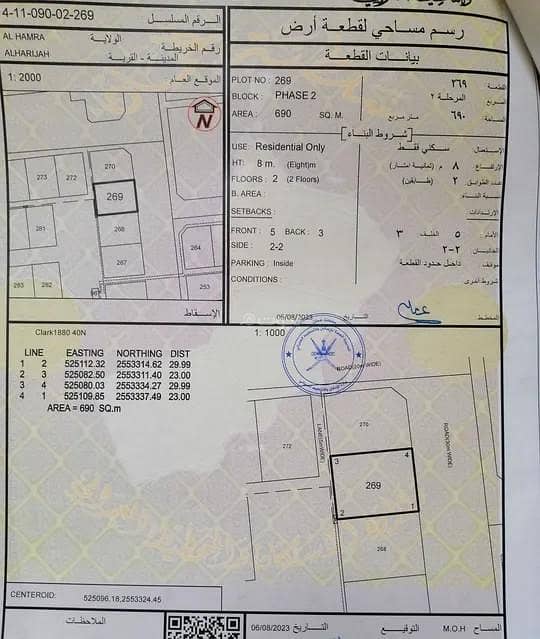 4-11-090-02-269
الرقم المسلسل
AL HAMRA
الولاية
رقم الخريطة
ALHARIJAH
المدينة - القرية
1: 2000
الموقع العام
N
270
273
272
269
268
281
267
264
283
282
253
الإسقاط
رسم مساحي لقطعة أرض
بيانات القطعة
PLOT NO : 269
٢٦٩
القطعة
BLOCK : PHASE 2
المرحلة ٢
المربع
AREA : 690 SQ. M.
متر مربع
٦٩٠
المساحة
شروط البناء
USE: Residential Only
سكني فقط
الإستعمال
HT: 8 m. (Eight)m
٨ م (ثمانية امتار)
الإرتفاع
FLOORS : 2 (2 Floors)
٢ (طابقين)
عدد الطوابق
B. AREA :
نسبة البناء
SETBACKS :
الإرتدادات
FRONT : 5 BACK : 3
الأمام : ٥ الخلف : ٣
SIDE : 2-2
الجانبان : ٢-٢
PARKING : Inside
داخل حدود القطعة
مواقف
CONDITIONS :
شروط أخرى
06/08/2023
التاريخ
المخطط
Clark1880 40N
1: 1000
LINE EASTING NORTHING DIST
1 2 525112.32 2553314.62 29.99
2 3 525082.50 2553311.40 23.00
3 4 525080.03 2553334.27 29.99
4 1 525109.85 2553337.49 23.00
AREA = 690 SQ.m
ROAD(20m WIDE)
270
272
3
4
269
2
1
268
CENTEROID: 525096.18,2553324.45
الملاحظات
06/08/2023
التاريخ
التوقيع
M.O.H
المساح